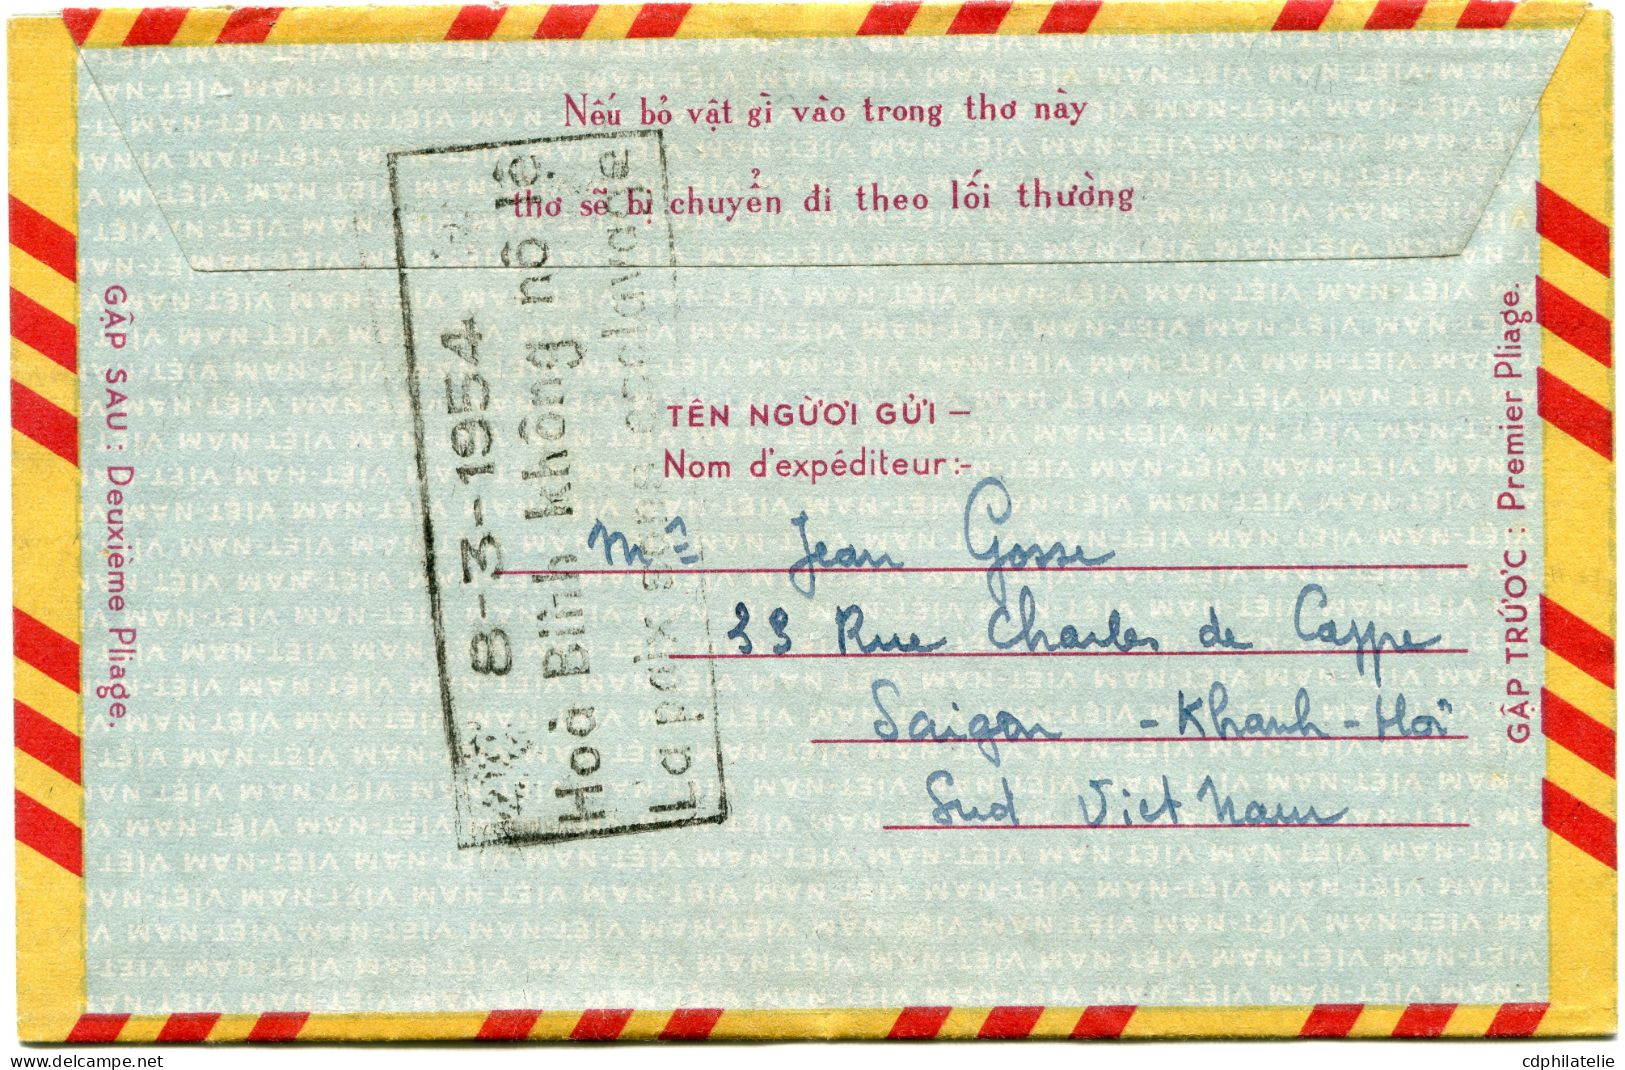 Nếu bỏ vật gì vào trong thơ này
thơ sẽ bị chuyển đi theo lối thường
8-3-1954
Hoà Bình không nô lệ
La paix sans esclavage
GẬP SAU : Deuxième Pliage.
GẬP TRƯỚC : Premier Pliage.
TÊN NGƯỜI GỬI —
Nom d'expéditeur :-
Jean Gosse
33 Rue Charles de Cappe
Saigon - Khanh-Hoi
Sud Viet Nam
delcampe.net
cdphilatelie